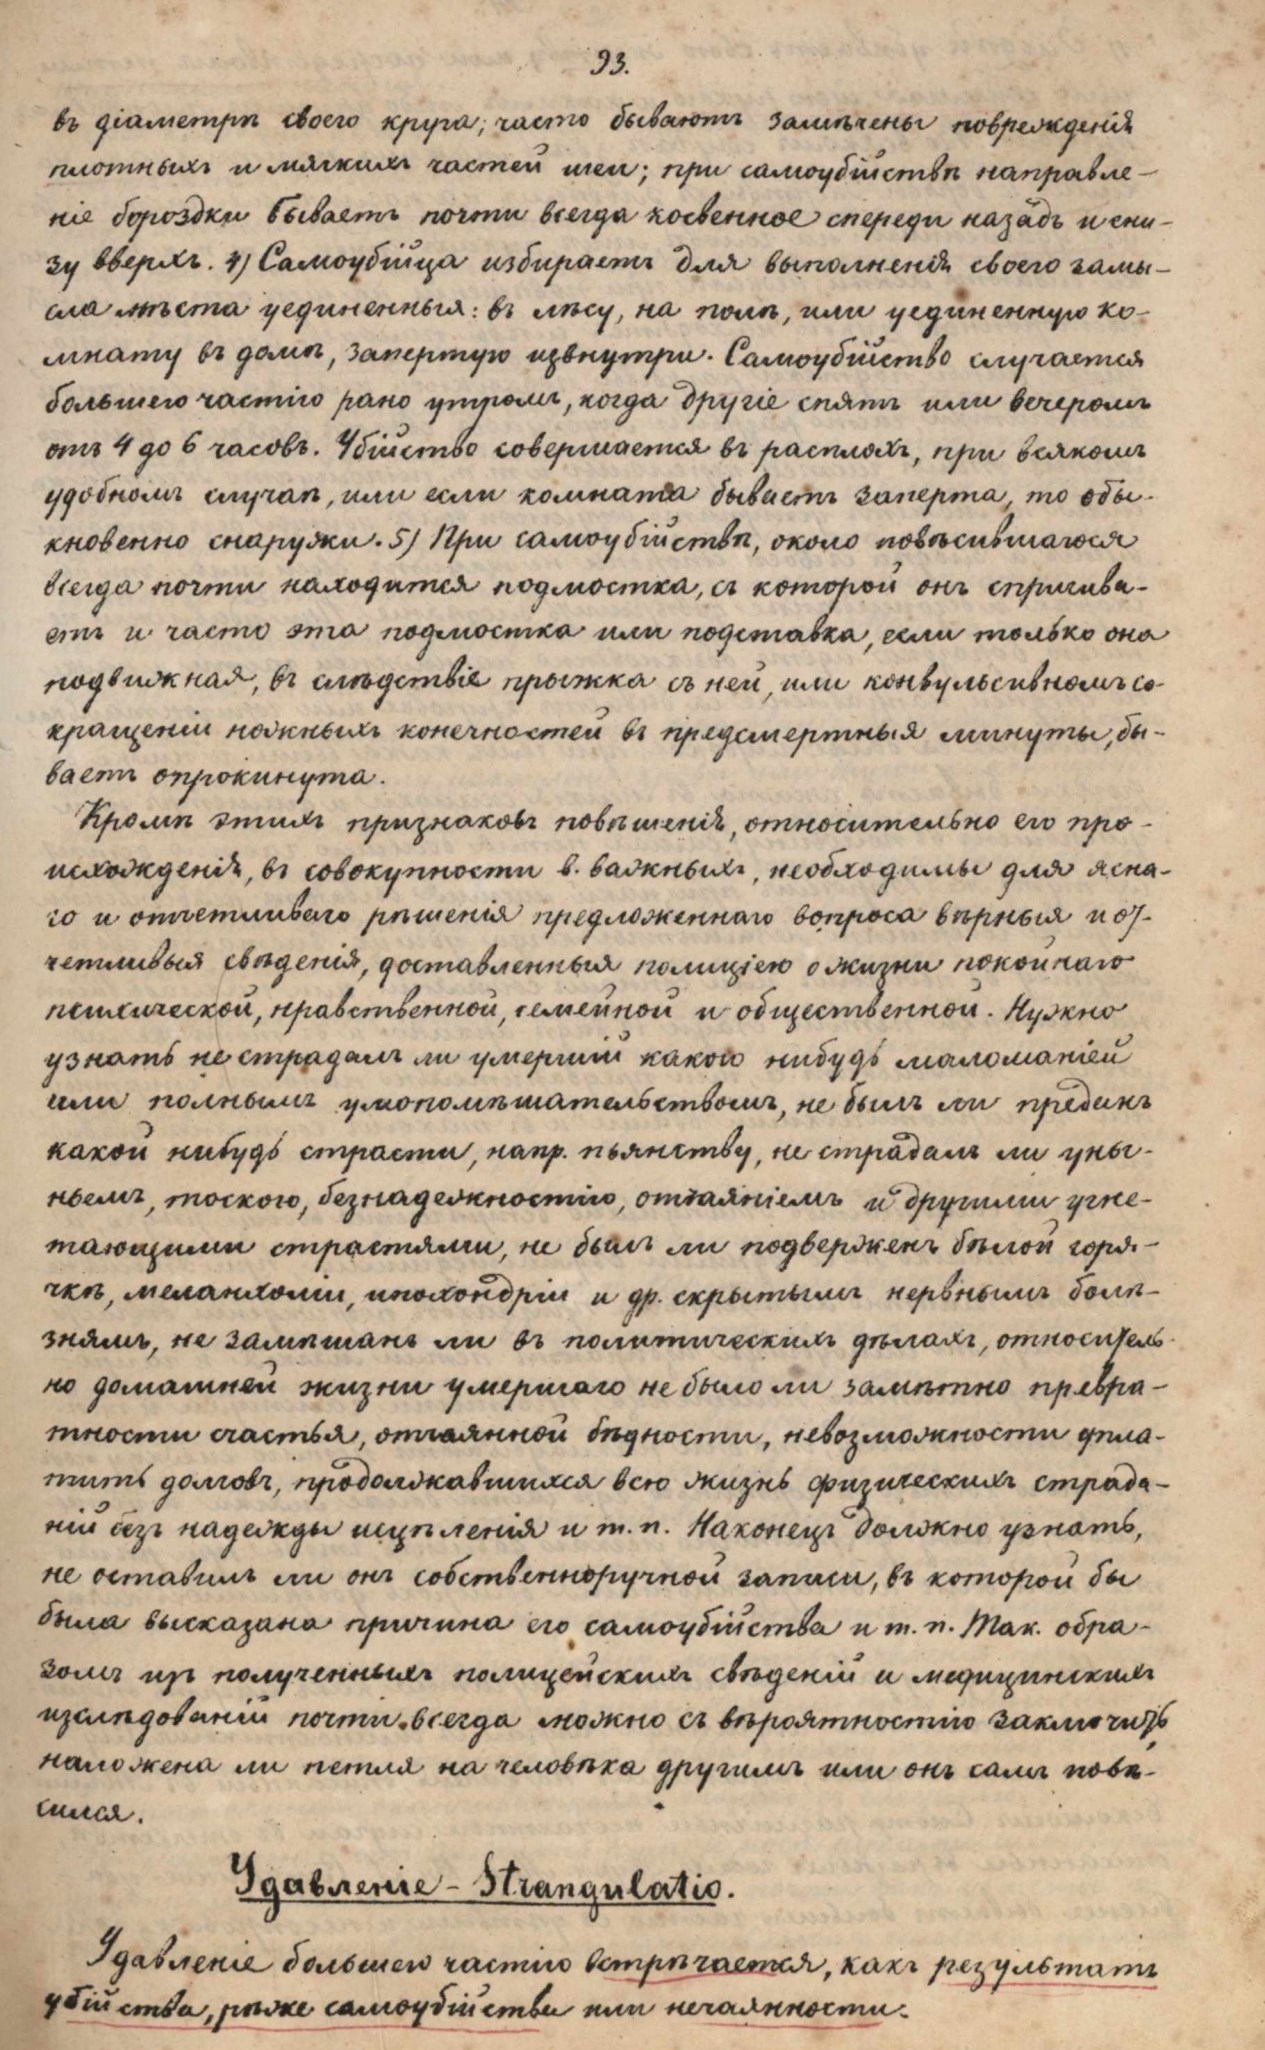 93.
въ діаметрѣ своего круга; часто бываютъ замѣчены поврежденія
плотныхъ и мягкихъ частей шеи; при самоубійствѣ направле-
ніе бороздки бываетъ почти всегда косвенное спереди назадъ и сни-
зу вверхъ. 4) Самоубійца избираетъ для выполненія своего замы-
сла мѣста уединенныя: въ лѣсу, на полѣ, или уединенную ко-
мнату въ домѣ, запертую извнутри. Самоубійство случается
большею частію рано утромъ, когда другіе спятъ или вечеромъ
отъ 4 до 6 часовъ. Убійство совершается въ расплохъ, при всякомъ
удобномъ случаѣ, или если комната бываетъ заперта, то обы-
кновенно снаружи. 5) При самоубійствѣ, около повѣсившагося
всегда почти находится подмостка, съ которой онъ спрыгива-
етъ и часто эта подмостка или подставка, если только она
подвижная, въ слѣдствіе прыжка съ ней, или конвульсивномъ со-
кращеніи ножныхъ конечностей въ предсмертныя минуты, бы-
ваетъ опрокинута.
Кромѣ этихъ признаковъ повѣшенія, относительно его про-
исхожденія, въ совокупности в. важныхъ, необходимы для ясна-
го и отчетливаго рѣшенія предложеннаго вопроса вѣрныя и от-
четливыя свѣденія, доставленныя полиціею о жизни покойнаго
психической, нравственной, семейной и общественной. Нужно
узнать не страдалъ ли умершій какою нибудь маломаніей
или полнымъ умопомѣшательствомъ, не былъ ли преданъ
какой нибудь страсти, напр. пьянству, не страдалъ ли уны-
ньемъ, тоскою, безнадежностію, отчаяніемъ и другими угне-
тающими страстями, не былъ ли подверженъ бѣлой горя-
чкѣ, меланхоліи, ипохондріи и др. скрытымъ нервнымъ болѣ-
знямъ, не замѣшанъ ли въ политическихъ дѣлахъ, относитель-
но домашней жизни умершаго не было ли замѣтно превра-
тности счастья, отчаянной бѣдности, невозможности упла-
тить долговъ, продолжавшихся всю жизнь физическихъ страда-
ній безъ надежды исцѣленія и т. п. Наконецъ должно узнать,
не оставилъ ли онъ собственноручной записи, въ которой бы
была высказана причина его самоубійства и т. п. Так. обра-
зомъ изъ полученныхъ полицейскихъ свѣденій и медицинскихъ
изслѣдованій почти всегда можно съ вѣроятностію заключить
наложена ли петля на человѣка другимъ или онъ самъ повѣ-
сился.
Удавленіе - Strangulatio.
Удавленіе большею частію встрѣчается, какъ результатъ
убійства, рѣже самоубійства или нечаянности.